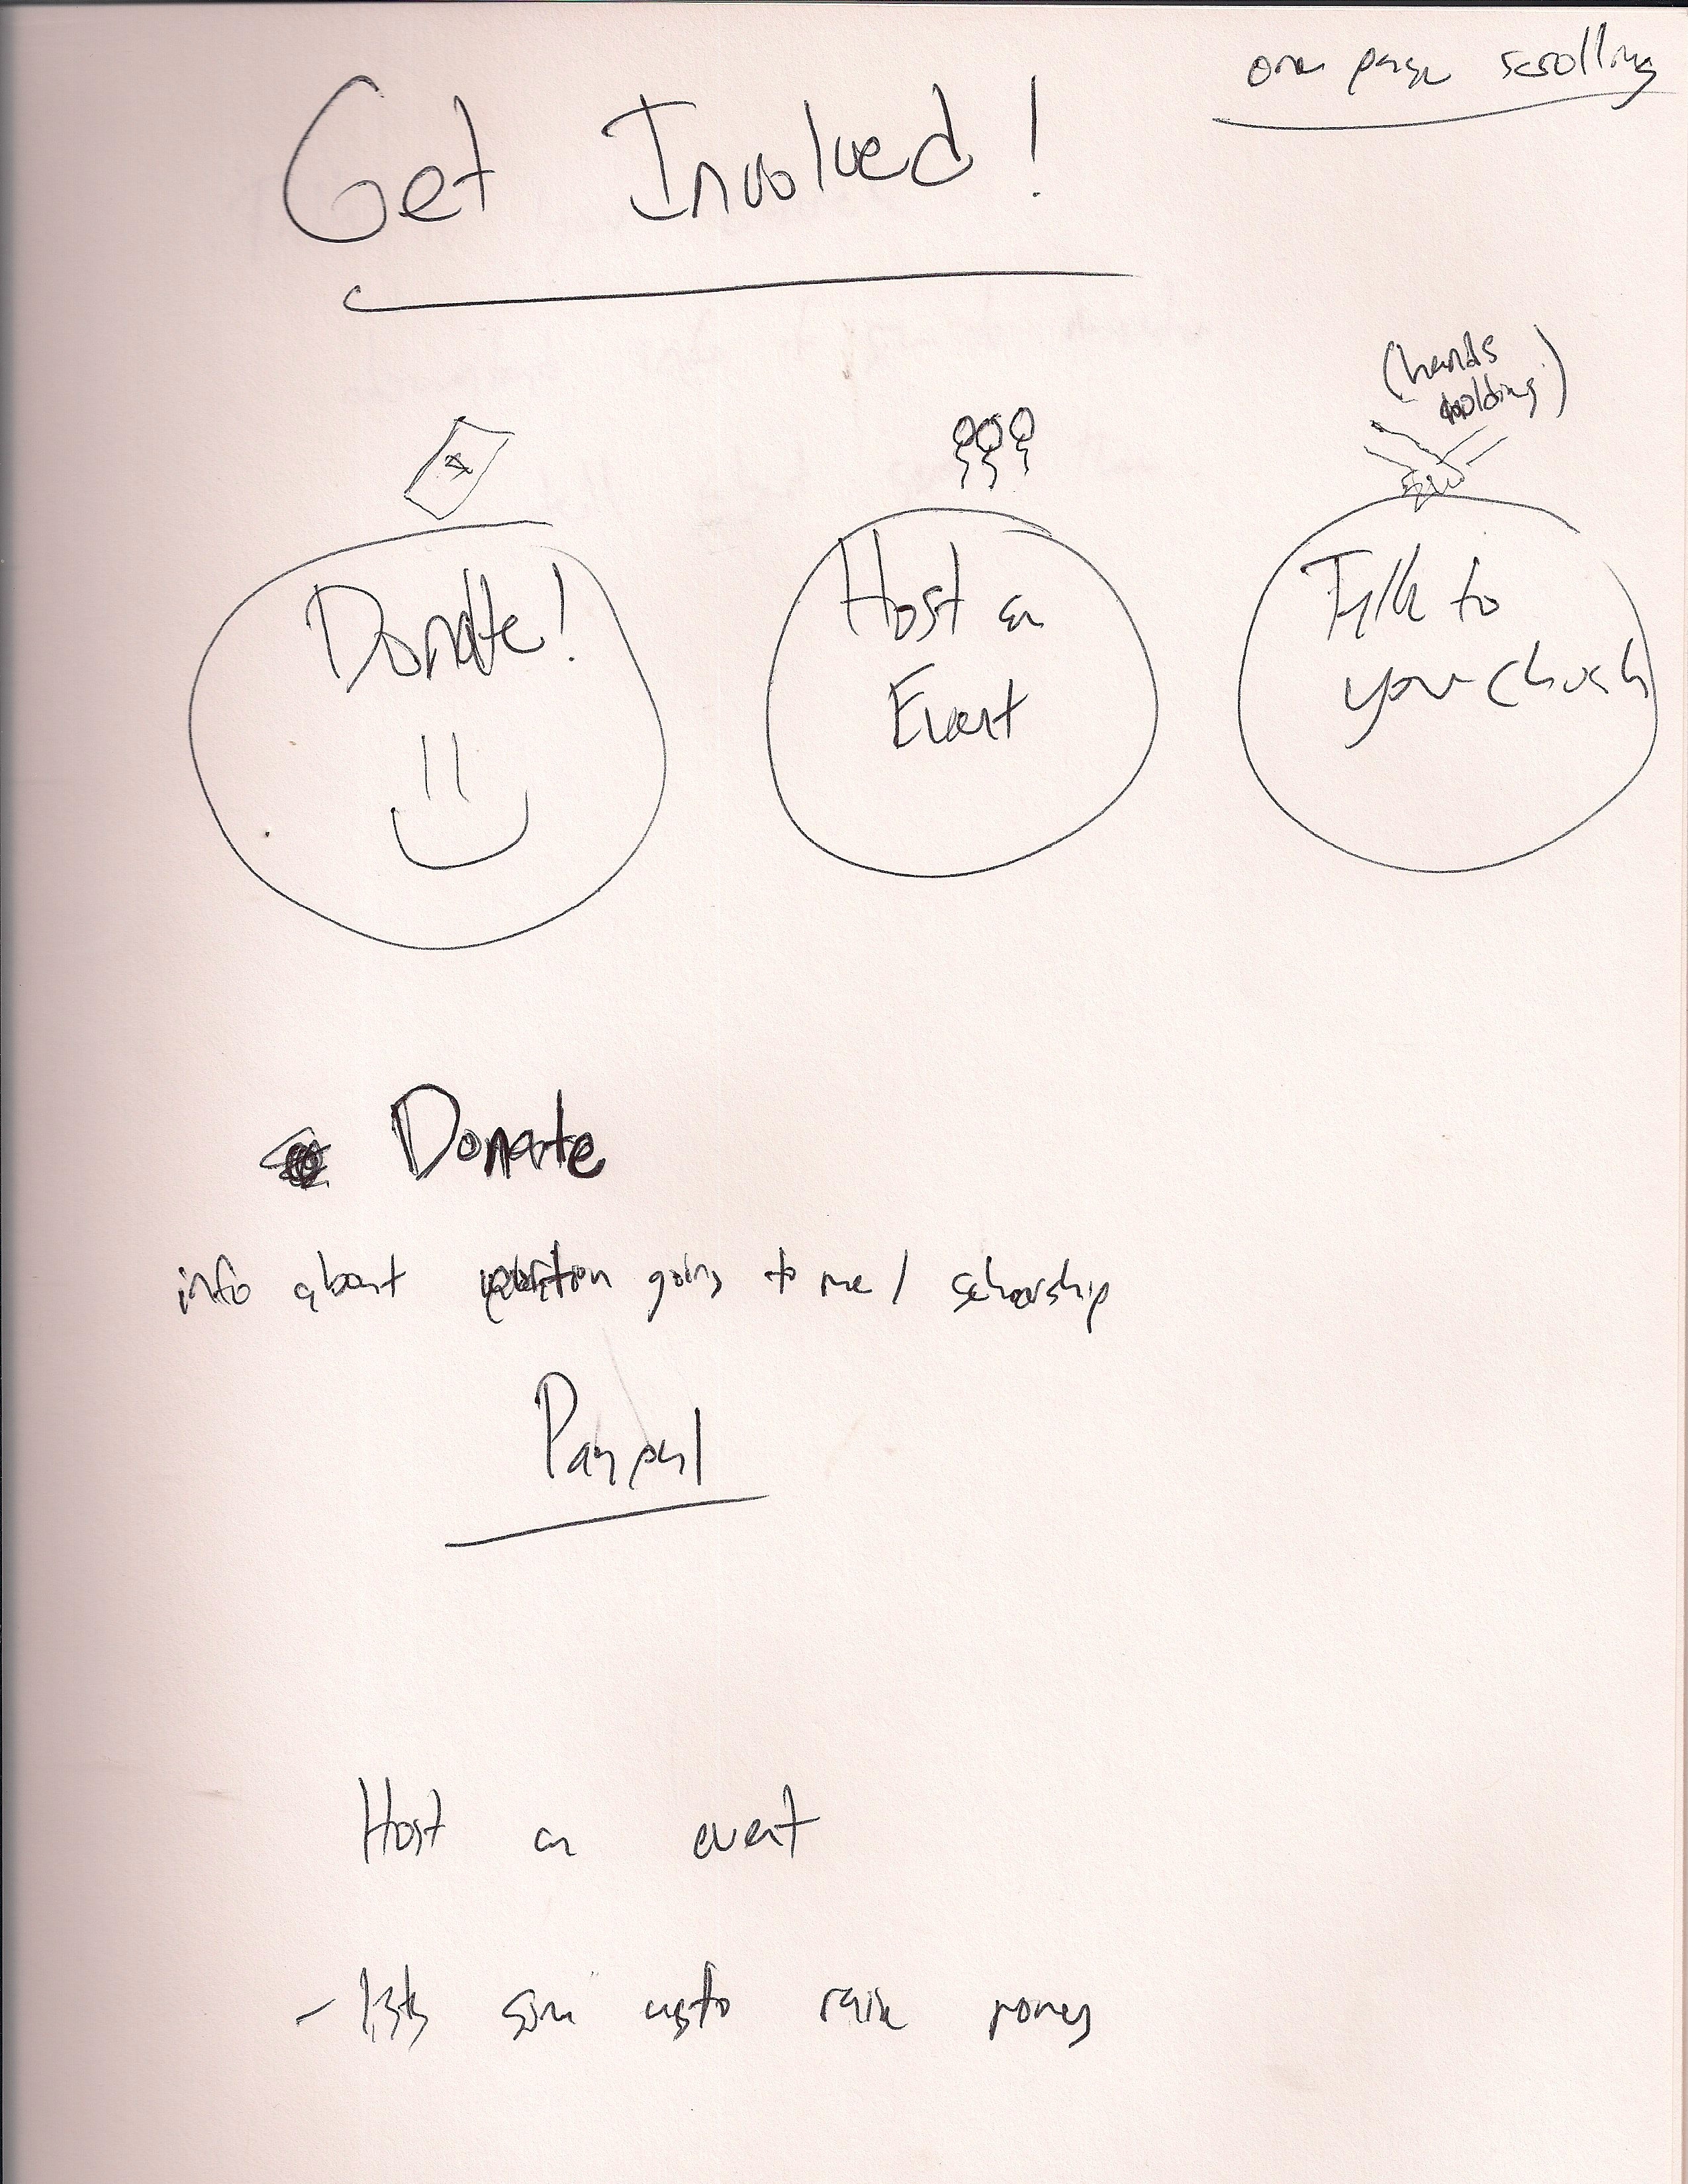 one page scrolling
Get Involved!
(hands
holding)
Donate!
Host an
Event
Talk to
your church
Donate
info about going to me / scholarship
Paypal
Host an event
- lists some ways to raise money